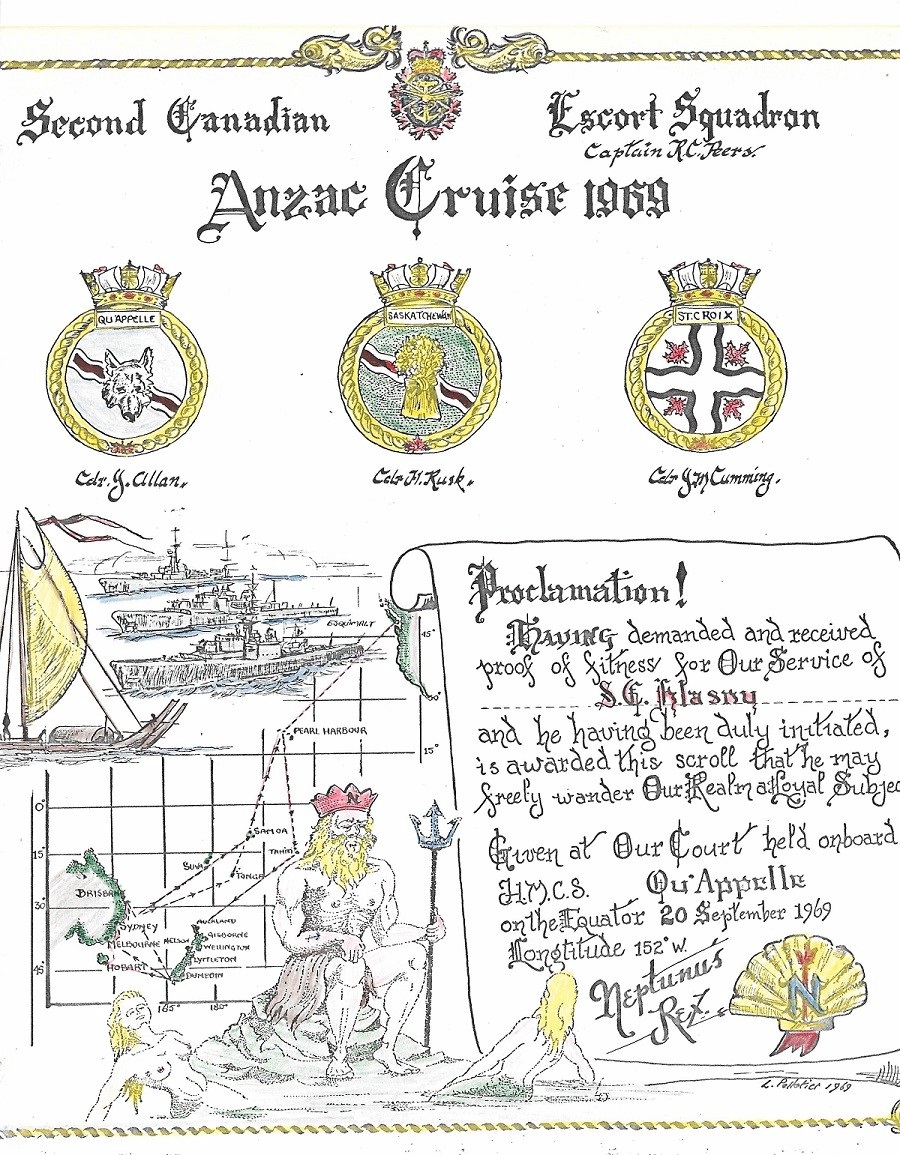 Second Canadian
Escort Squadron
Captain R.C. Peers.
Anzac Cruise 1969
QU'APPELLE
SASKATCHEWAN
ST. CROIX
Cdr. J. Allan.
Cdr H. Rusk.
Cdr J M Cumming.
ESQUIMALT
45°
30°
PEARL HARBOUR
15°
0°
SAMOA
TAHITI
15°
SUVA
TONGA
BRISBANE
30°
SYDNEY
AUCKLAND
GISBORNE
MELBOURNE
NELSON
WELLINGTON
LYTTLETON
HOBART
45°
DUNEDIN
165°
180°
N
Proclamation!
Having demanded and received
proof of fitness for Our Service of
S.E. Klasny
and he having been duly initiated,
is awarded this scroll that he may
freely wander Our Realm a Loyal Subjec
Given at Our Court held onboard
H.M.C.S. Qu'Appelle
on the Equator 20 September 1969
Longtitude 152° W.
Neptunus
Rex.
N
L. Pelletier 1969